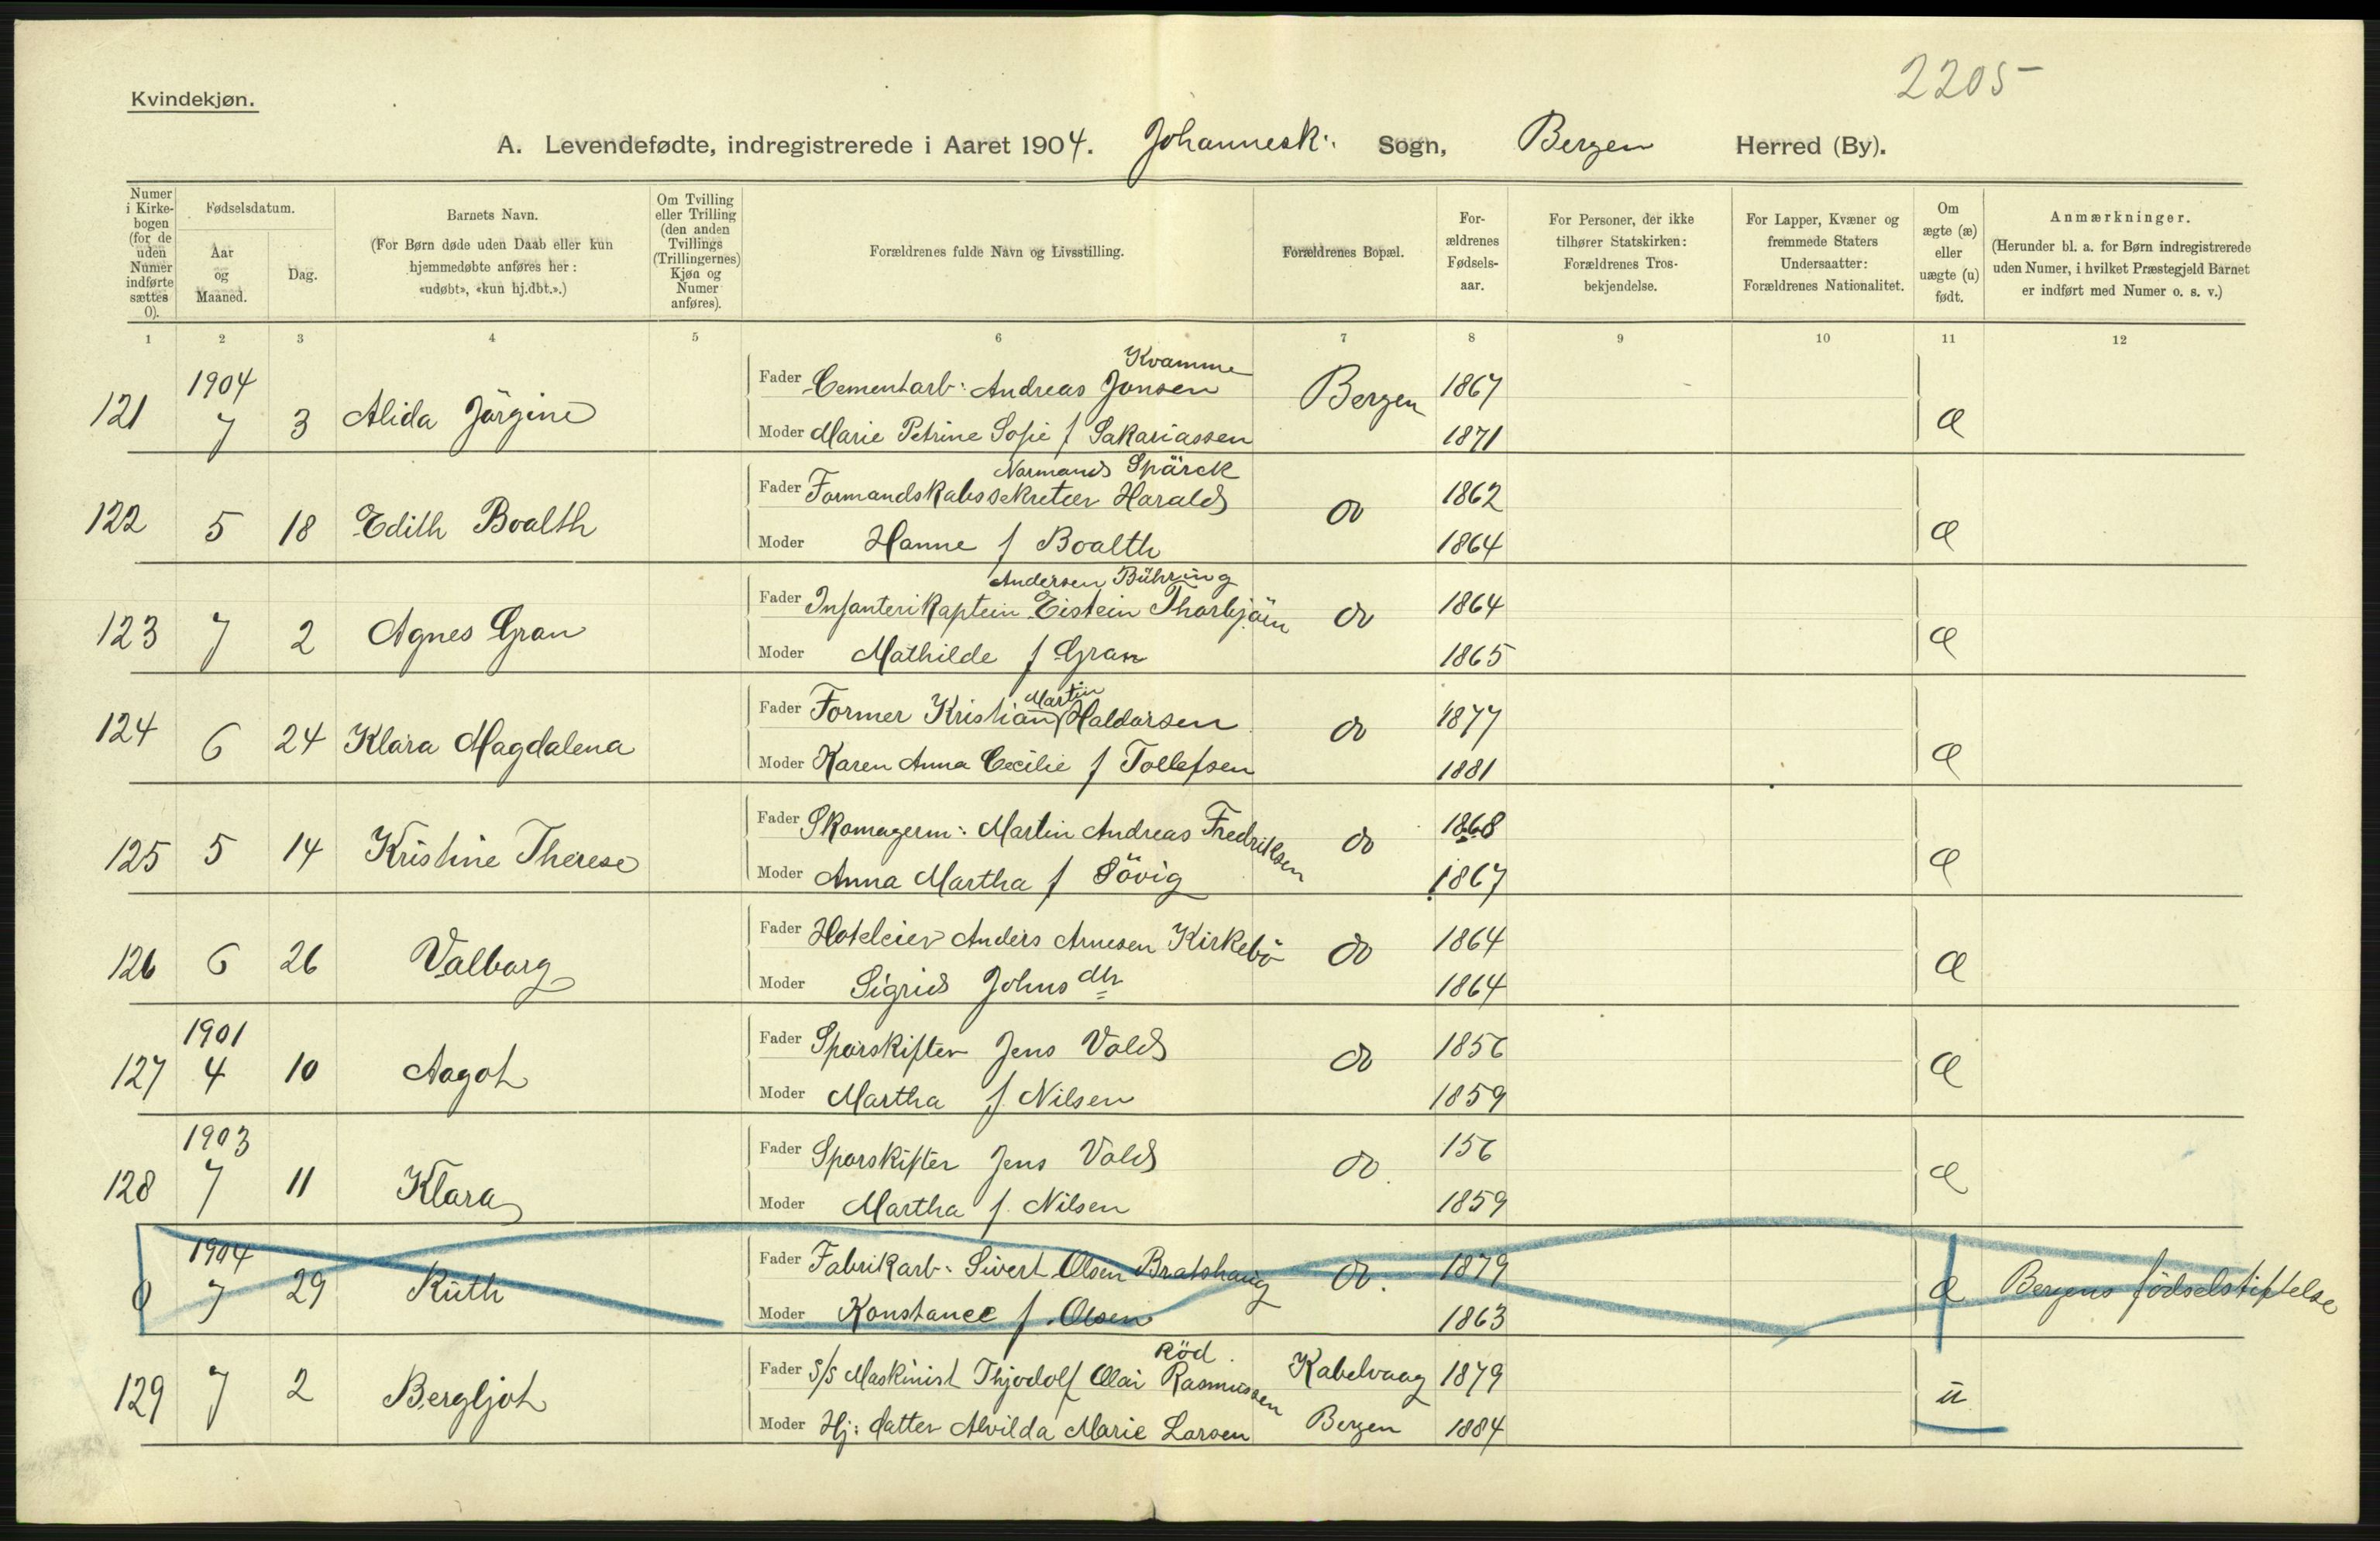 2205
Kvindekjøn.
A. Levendefødte, indregistrerede i Aaret 1904. Johannesk: Sogn, Bergen Herred (By).
Numer i Kirkebogen (for de uden Numer indførte sættes 0).
Fødselsdatum.
Aar og Maaned.
Dag.
Barnets Navn.
(For Børn døde uden Daab eller kun hjemmedøbte anføres her: «udøbt», «kun hj.dbt.».)
Om Tvilling eller Trilling (den anden Tvillings (Trillingernes) Kjøn og Numer anføres).
Forældrenes fulde Navn og Livsstilling.
Forældrenes Bopæl.
Forældrenes Fødselsaar.
For Personer, der ikke tilhører Statskirken: Forældrenes Trosbekjendelse.
For Lapper, Kvæner og fremmede Staters Undersaatter: Forældrenes Nationalitet.
Om ægte (æ) eller uægte (u) født.
Anmærkninger.
(Herunder bl. a. for Børn indregistrerede uden Numer, i hvilket Præstegjeld Barnet er indført med Numer o. s. v.)
1 2 3 4 5 6 7 8 9 10 11 12
1904
121 7 3 Alida Jörgine
Kvamme
Fader Cementarb: Andreas Jonsen Bergen 1867
Moder Marie Petrine Sofie f Sakariassen 1871 æ
122 5 18 Edith Boalth
Normand Spärck
Fader Formandskabssekretær Harald do 1862
Moder Hanne f Boalth 1864 æ
123 7 2 Agnes Gran
Andersen Bühring
Fader Infanterikaptein Eistein Thorbjörn do 1864
Moder Mathilde f Gran 1865 æ
124 6 24 Klara Magdalena
Martin
Fader Former Kristian Haldorsen do 1877
Moder Karen Anna Cecilie f Tollefsen 1881 æ
125 5 14 Kristine Therese
Fader Skomagerm: Martin Andreas Fredriksen do 1868
Moder Anna Martha f Sövig 1867 æ
126 6 26 Valborg
Fader Hoteleier Anders Arnesen Kirkebö do 1864
Moder Sigrid Johnsdtr 1864 æ
1901
127 4 10 Aagot
Fader Sporskifter Jens Vold do 1856
Moder Martha f. Nilsen 1859 æ
1903
128 7 11 Klara
Fader Sporskifter Jens Vold do 156
Moder Martha f. Nilsen 1859 æ
1904
0 7 29 Ruth
Fader Fabrikarb: Sivert Olsen Bratshaug do. 1879
Moder Konstance f. Olsen 1863 æ Bergens födselsstiftelse
129 7 2 Bergljot
Röd.
Fader S/S Maskinist Thjodolf Olai Rasmussen Kabelvaag 1879
Moder Hj: datter Alvilda Marie Larsen Bergen 1884 u